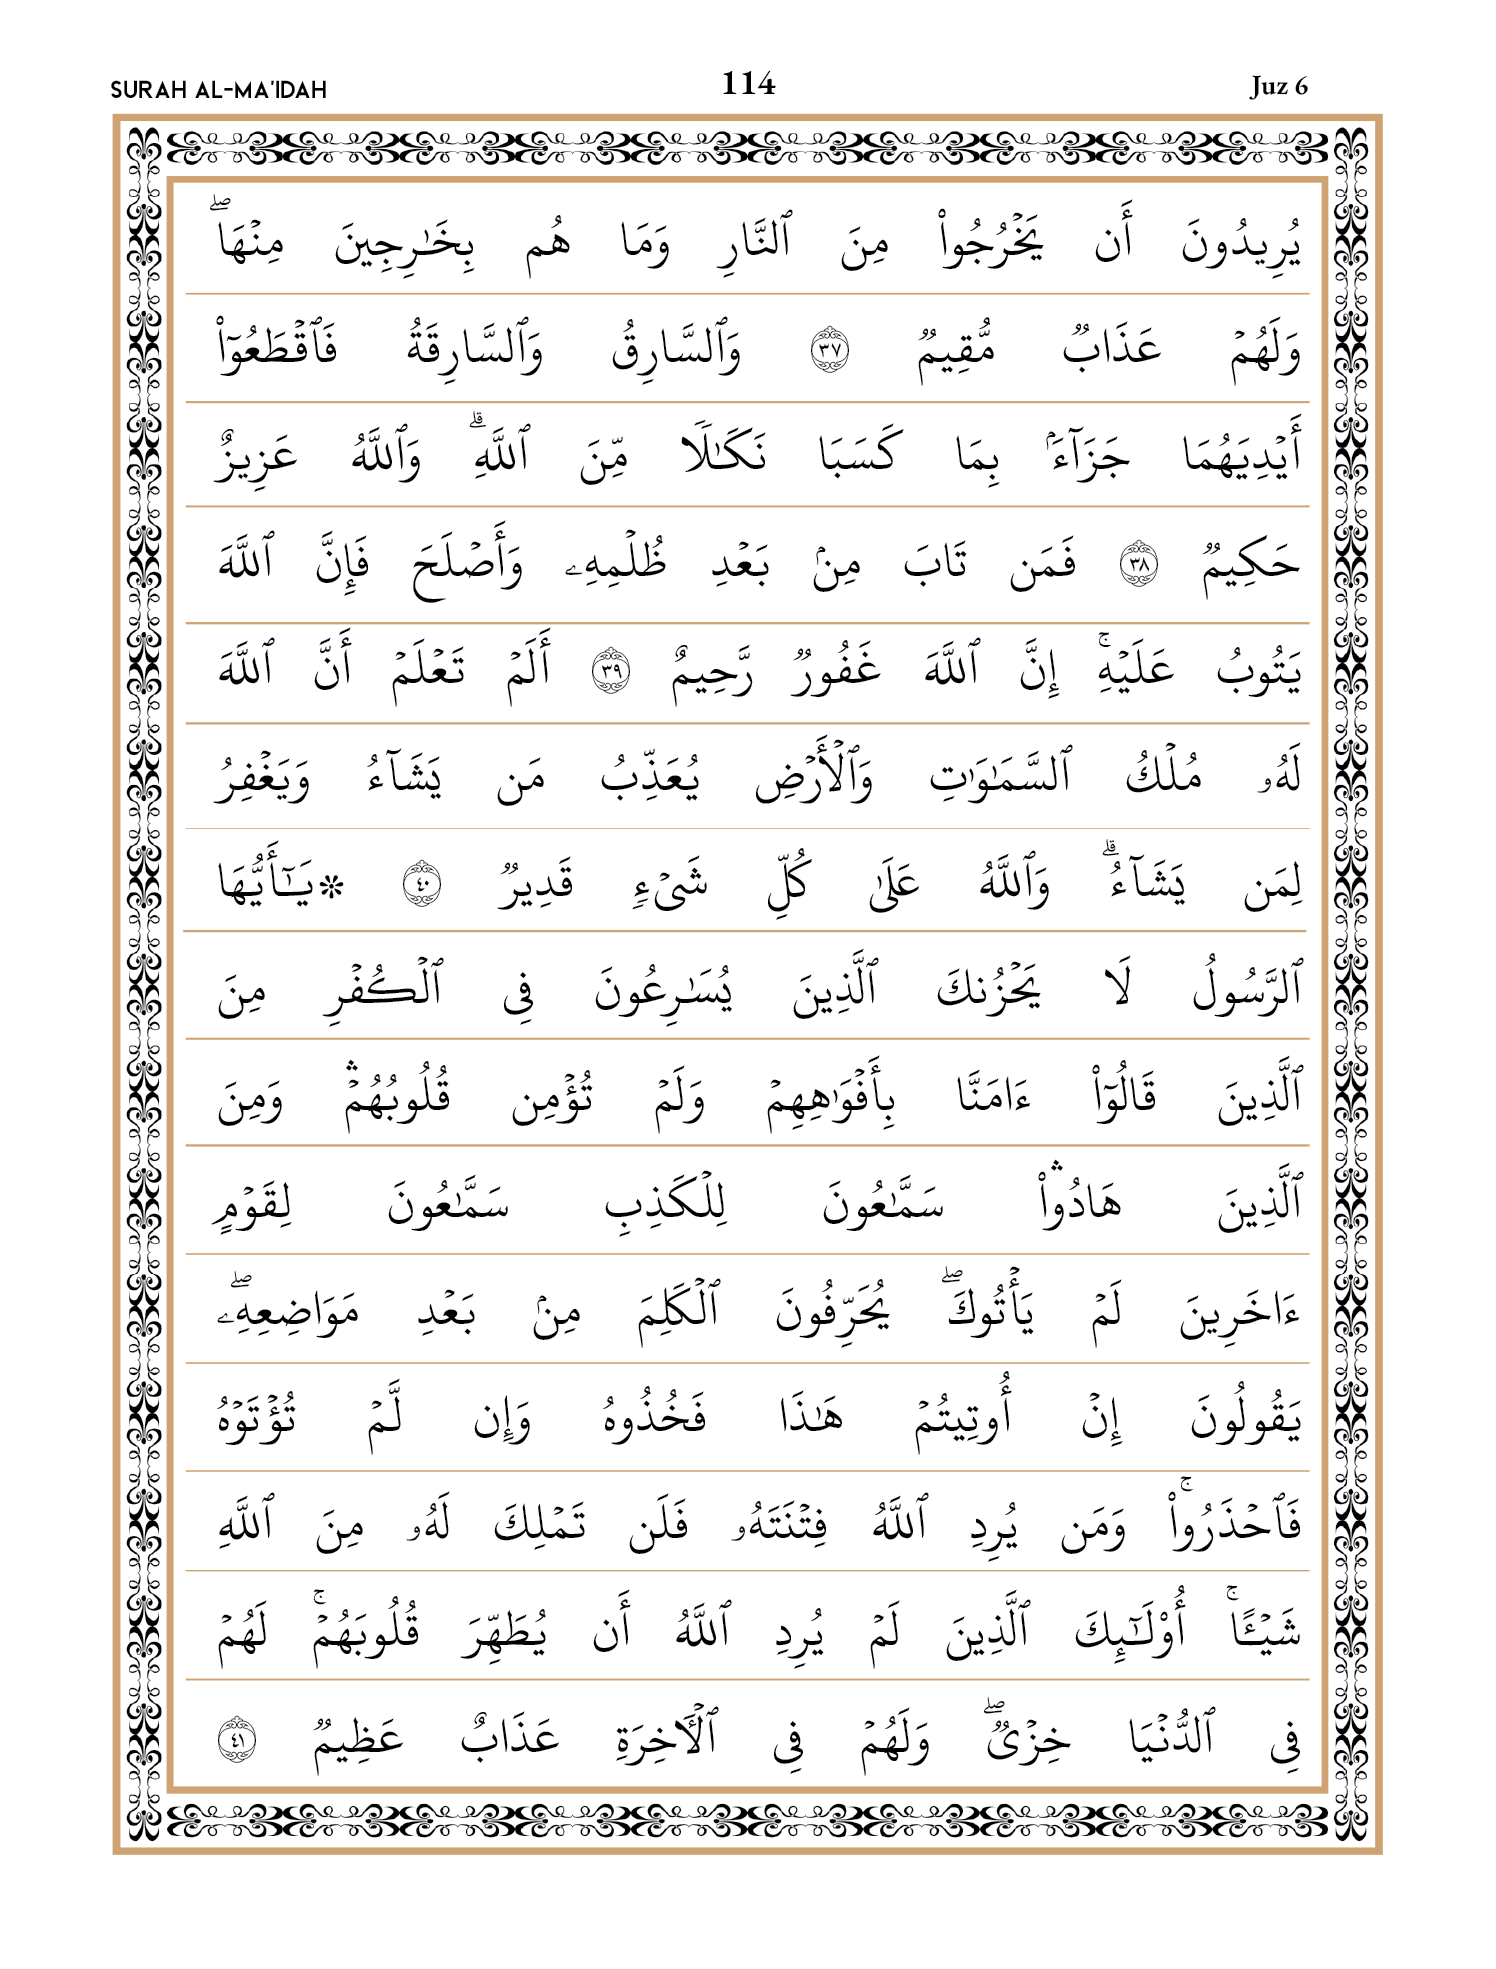 SURAH AL-MA'IDAH 114 Juz 6
يُرِيدُونَ أَن يَخۡرُجُواْ مِنَ ٱلنَّارِ وَمَا هُم بِخَٰرِجِينَ مِنۡهَاۖ
وَلَهُمۡ عَذَابٞ مُّقِيمٞ ٣٧ وَٱلسَّارِقُ وَٱلسَّارِقَةُ فَٱقۡطَعُوٓاْ
أَيۡدِيَهُمَا جَزَآءَۢ بِمَا كَسَبَا نَكَٰلٗا مِّنَ ٱللَّهِۗ وَٱللَّهُ عَزِيزٌ
حَكِيمٞ ٣٨ فَمَن تَابَ مِنۢ بَعۡدِ ظُلۡمِهِۦ وَأَصۡلَحَ فَإِنَّ ٱللَّهَ
يَتُوبُ عَلَيۡهِۚ إِنَّ ٱللَّهَ غَفُورٞ رَّحِيمٌ ٣٩ أَلَمۡ تَعۡلَمۡ أَنَّ ٱللَّهَ
لَهُۥ مُلۡكُ ٱلسَّمَٰوَٰتِ وَٱلۡأَرۡضِ يُعَذِّبُ مَن يَشَآءُ وَيَغۡفِرُ
لِمَن يَشَآءُۗ وَٱللَّهُ عَلَىٰ كُلِّ شَيۡءٖ قَدِيرٞ ٤٠ ۞يَٰٓأَيُّهَا
ٱلرَّسُولُ لَا يَحۡزُنكَ ٱلَّذِينَ يُسَٰرِعُونَ فِي ٱلۡكُفۡرِ مِنَ
ٱلَّذِينَ قَالُوٓاْ ءَامَنَّا بِأَفۡوَٰهِهِمۡ وَلَمۡ تُؤۡمِن قُلُوبُهُمۡۛ وَمِنَ
ٱلَّذِينَ هَادُواْۛ سَمَّٰعُونَ لِلۡكَذِبِ سَمَّٰعُونَ لِقَوۡمٍ
ءَاخَرِينَ لَمۡ يَأۡتُوكَۖ يُحَرِّفُونَ ٱلۡكَلِمَ مِنۢ بَعۡدِ مَوَاضِعِهِۦۖ
يَقُولُونَ إِنۡ أُوتِيتُمۡ هَٰذَا فَخُذُوهُ وَإِن لَّمۡ تُؤۡتَوۡهُ
فَٱحۡذَرُواْۚ وَمَن يُرِدِ ٱللَّهُ فِتۡنَتَهُۥ فَلَن تَمۡلِكَ لَهُۥ مِنَ ٱللَّهِ
شَيۡـًٔاۚ أُوْلَٰٓئِكَ ٱلَّذِينَ لَمۡ يُرِدِ ٱللَّهُ أَن يُطَهِّرَ قُلُوبَهُمۡۚ لَهُمۡ
فِي ٱلدُّنۡيَا خِزۡيٞۖ وَلَهُمۡ فِي ٱلۡأٓخِرَةِ عَذَابٌ عَظِيمٞ ٤١